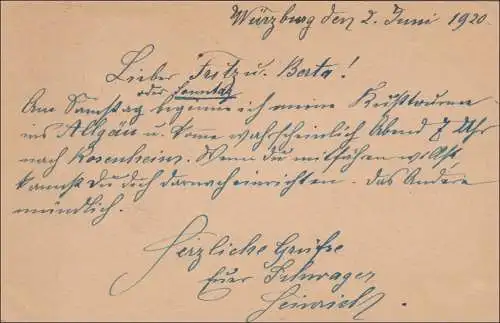 Würzburg den 2. Juni 1920.
Lieber Fritz u. Berta!
oder Sonntag
Am Samstag beginne ich meine
ins Allgäu u. kome wahrscheinlich Abend 7 Uhr
nach Rosenheim. Wenn du mitfahren willst,
kannst Du dich darnach einrichten. Das Andere
mündlich.
Herzliche Grüße
Euer Schwager
Heinrich